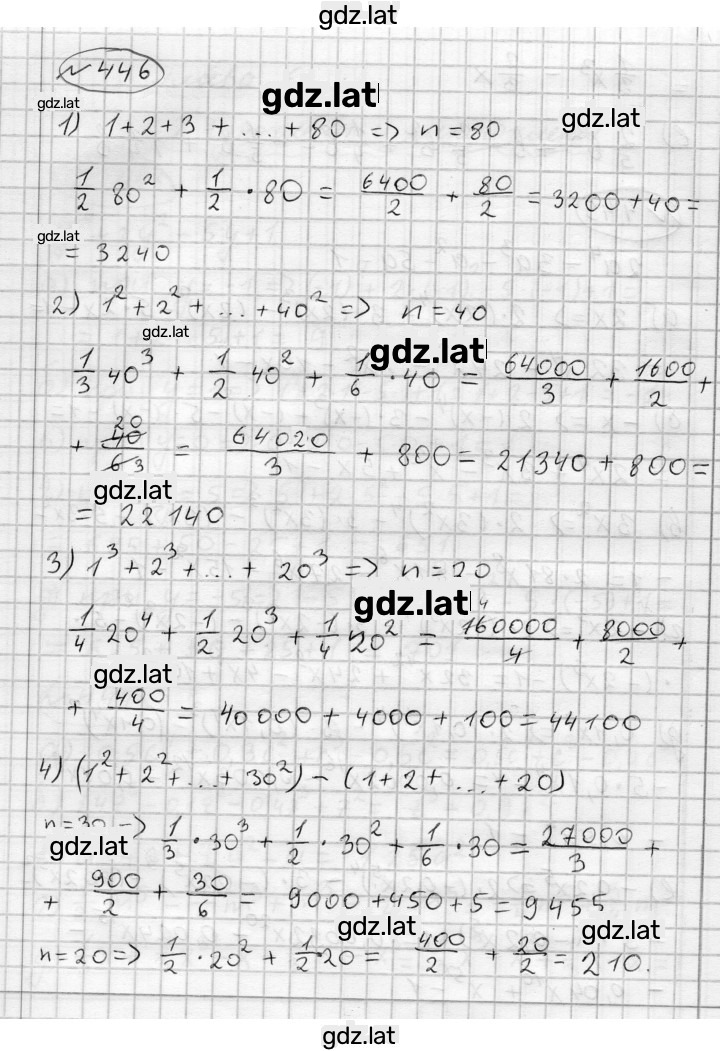 gdz.lat
№ 446
gdz.lat gdz.lat gdz.lat
1) 1+2+3 + ... + 80 => n = 80
1/2 80² + 1/2 · 80 = 6400/2 + 80/2 = 3200 + 40 =
gdz.lat
= 3240
2) 1² + 2² + ... + 40² => n = 40
gdz.lat gdz.lat
1/3 40³ + 1/2 40² + 1/6 · 40 = 64000/3 + 1600/2 +
+ 40/6 20/3 = 64020/3 + 800 = 21340 + 800 =
gdz.lat
= 22140
3) 1³ + 2³ + ... + 20³ => n = 20
gdz.lat
1/4 20⁴ + 1/2 20³ + 1/4 20² = 160000/4 + 8000/2 +
gdz.lat
+ 400/4 = 40000 + 4000 + 100 = 44100
4) (1² + 2² + ... + 30²) - (1 + 2 + ... + 20)
n = 30 => 1/3 · 30³ + 1/2 · 30² + 1/6 · 30 = 27000/3 +
gdz.lat
+ 900/2 + 30/6 = 9000 + 450 + 5 = 9455
gdz.lat gdz.lat
n = 20 => 1/2 · 20² + 1/2 · 20 = 400/2 + 20/2 = 210.
gdz.lat